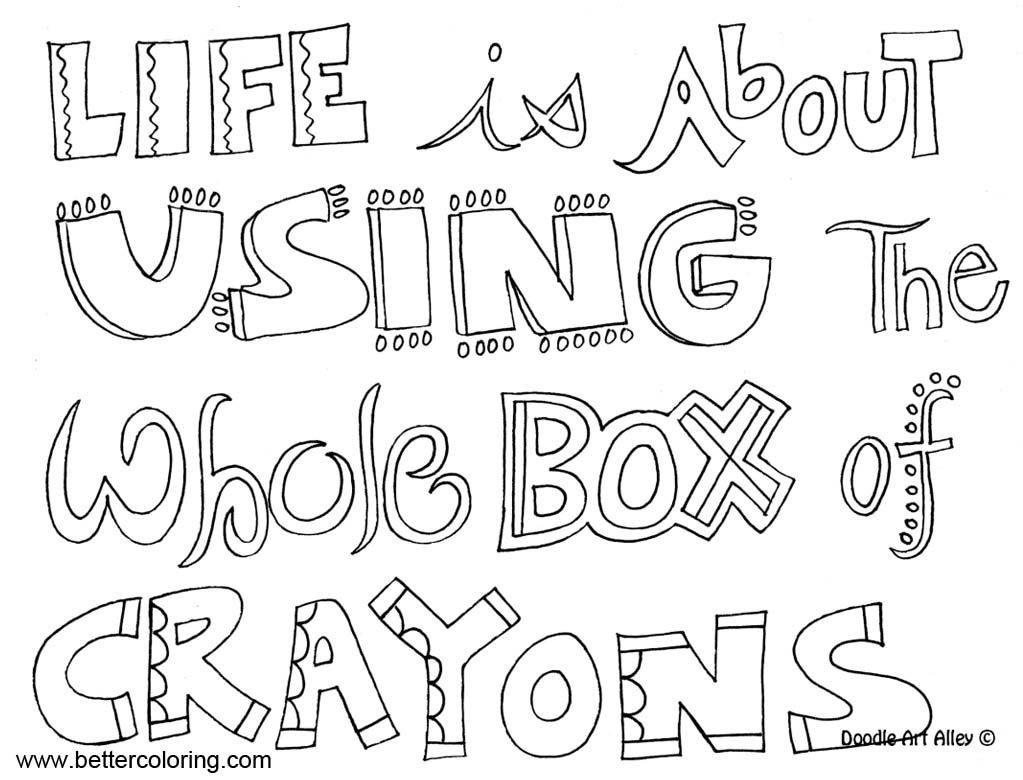 LIFE is About
USING The
Whole BOX of
CRAYONS
Doodle Art Alley ©
www.bettercoloring.com